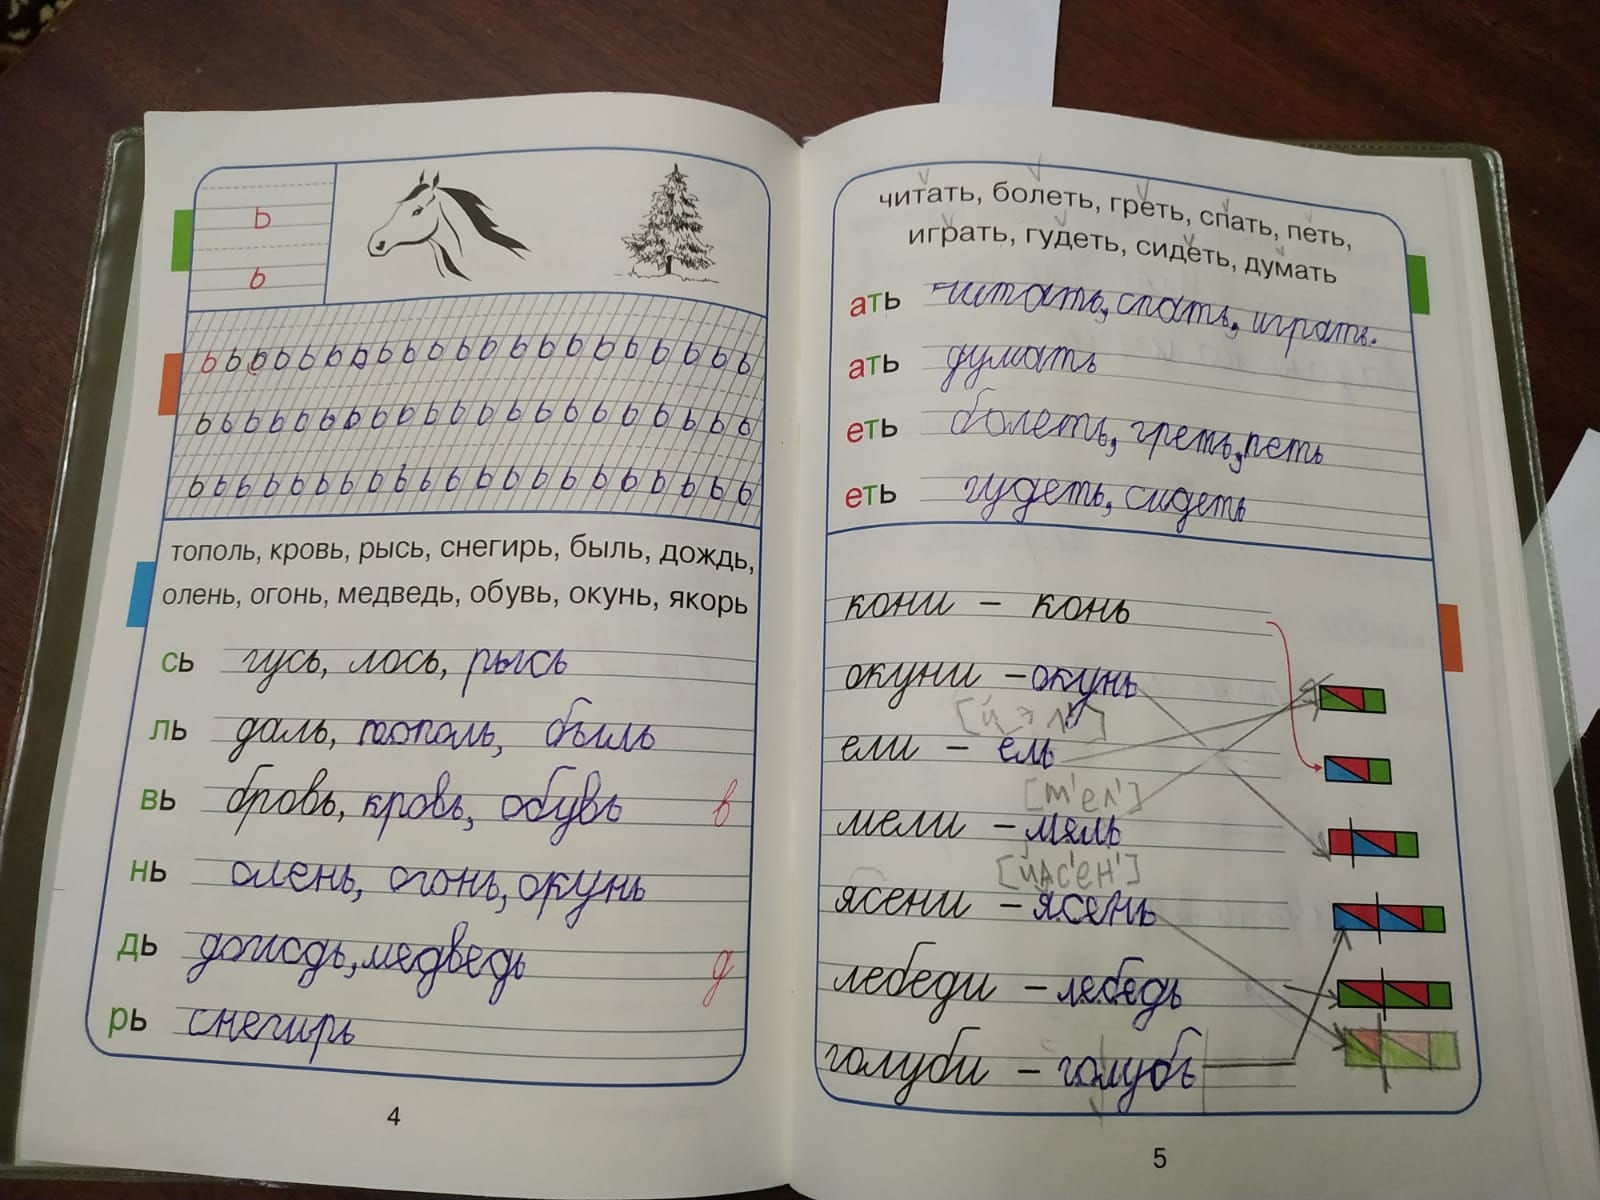 ь
ь
ь ь ь ь ь ь ь ь ь ь ь ь ь ь ь ь ь ь ь ь ь ь
ь ь ь ь ь ь ь ь ь ь ь ь ь ь ь ь ь ь ь ь ь ь
ь ь ь ь ь ь ь ь ь ь ь ь ь ь ь ь ь ь ь ь ь ь
тополь, кровь, рысь, снегирь, быль, дождь,
олень, огонь, медведь, обувь, окунь, якорь
сь гусь, лось, рысь
ль даль, тополь, быль
вь бровь, кровь, обувь в
нь олень, огонь, окунь
дь дождь, медведь д
рь снегирь
4
читать, болеть, греть, спать, петь,
играть, гудеть, сидеть, думать
ать читать, спать, играть.
ать думать
еть болеть, греть, петь
еть гудеть, сидеть
кони – конь
окуни – окунь
[й э л']
ели – ель
[м'ел']
мели – мель
[йас'ен']
ясени – ясень
лебеди – лебедь
голуби – голубь
5